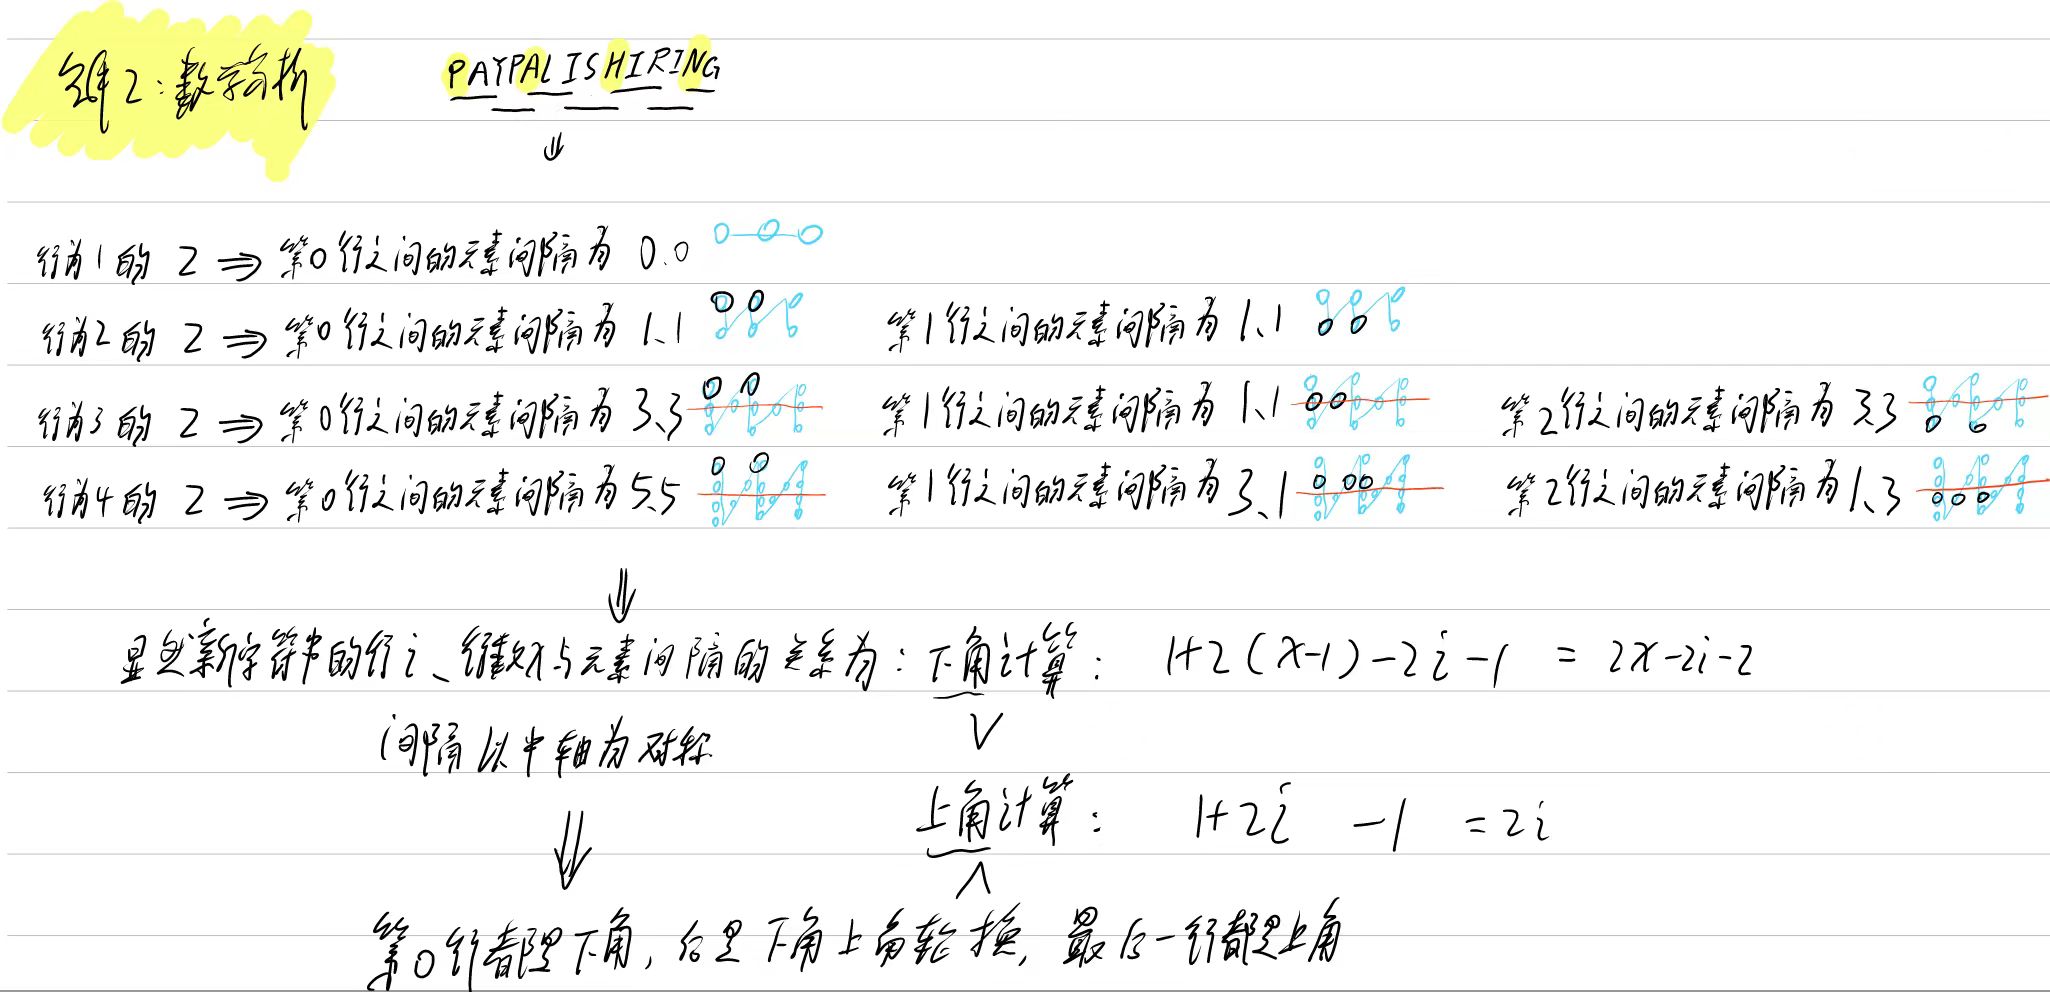 步骤2:数学分析 PAYPALISHIRING
行为1的 Z ⇒ 第0行之间的元素间隔为 0.0
行为2的 Z ⇒ 第0行之间的元素间隔为 1、1 第1行之间的元素间隔为 1、1
行为3的 Z ⇒ 第0行之间的元素间隔为 3、3 第1行之间的元素间隔为 1、1 第2行之间的元素间隔为 3、3
行为4的 Z ⇒ 第0行之间的元素间隔为 5、5 第1行之间的元素间隔为 3、1 第2行之间的元素间隔为 1、3
显然新字符串的行i、行数x与元素间隔的关系为:下角计算: 1+2(x-1)-2i-1 = 2x-2i-2
间隔以中轴为对称
上角计算: 1+2i -1 = 2i
第0行都是下角,后是下角上角轮换,最后一行都是上角